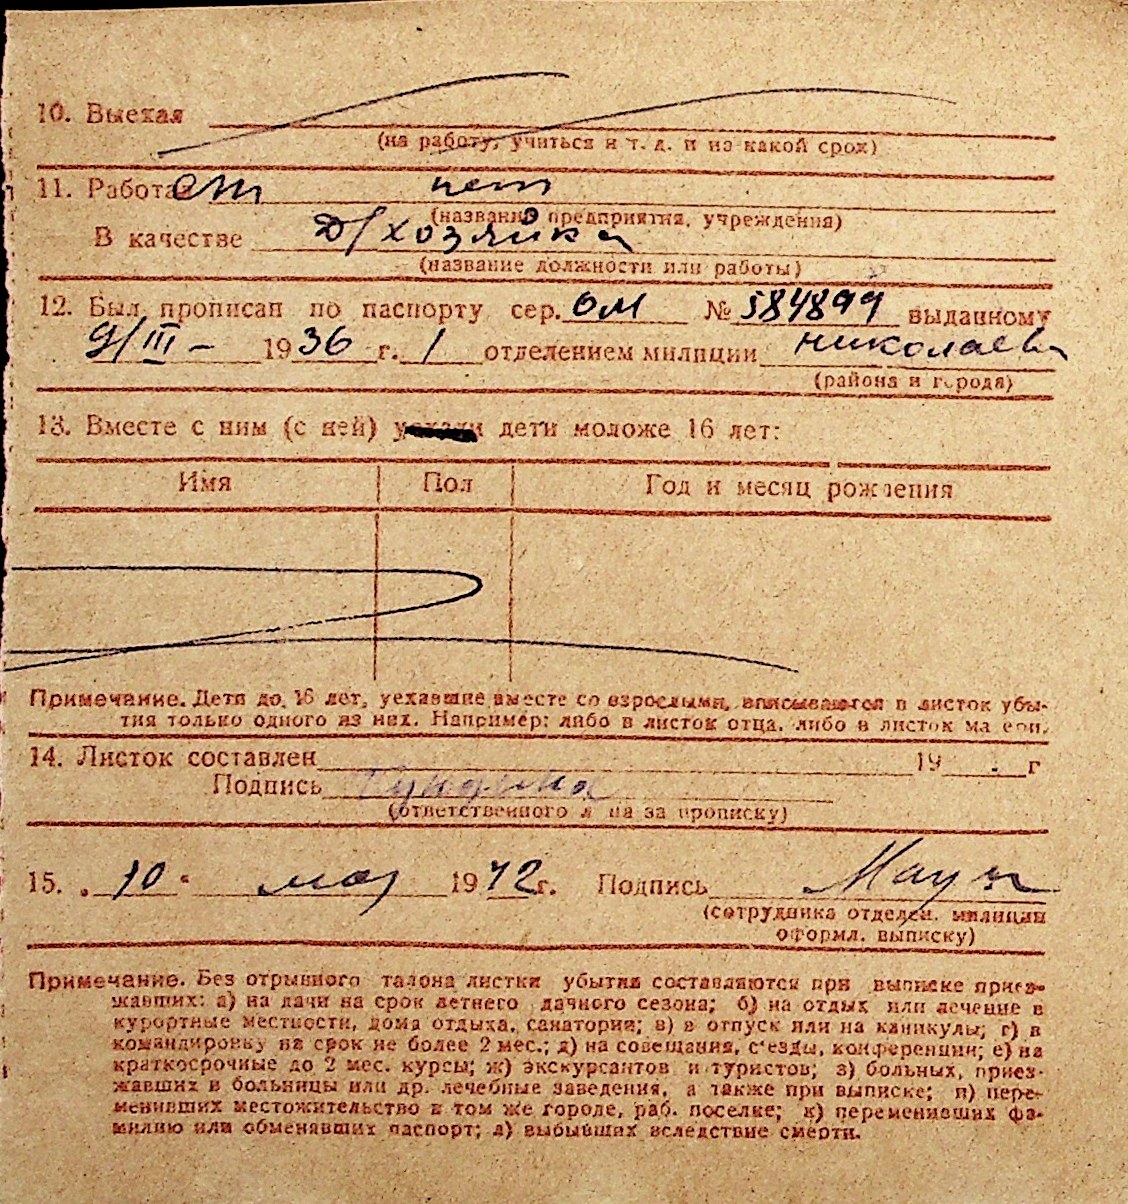 10. Выехал
(на работу, учиться и т. д. и на какой срок)
11. Работа ет нет
(название предприятия, учреждения)
В качестве д/хозяйка
(название должности или работы)
12. Был прописан по паспорту сер. ОМ № 584899 выданному
9/III – 1936 г. 1 отделением милиции Николаев
(района и города)
13. Вместе с ним (с ней) дети моложе 16 лет:
Имя Пол Год и месяц рождения
Примечание. Дети до 16 лет, уехавшие вместе со взрослыми, вписываются в листок убы-
тия только одного из них. Например: либо в листок отца, либо в листок ма ери.
14. Листок составлен 19 г
Подпись
(ответственного л ца за прописку)
15. „ 10 “ мая 1942 г. Подпись
(сотрудника отделен. милиции
оформл. выписку)
Примечание. Без отрывного талона листки убытия составляются при выписке приез-
жавших: а) на дачи на срок летнего дачного сезона; б) на отдых или лечение в
курортные местности, дома отдыха, санатории; в) в отпуск или на каникулы; г) в
командировку на срок не более 2 мес.; д) на совещания, с'езды, конференции; е) на
краткосрочные до 2 мес. курсы; ж) экскурсантов и туристов; з) больных, приез-
жавших в больницы или др. лечебные заведения, а также при выписке; и) пере-
менивших местожительство в том же городе, раб. поселке; к) переменивших фа-
милию или обменявших паспорт; л) выбывших вследствие смерти.